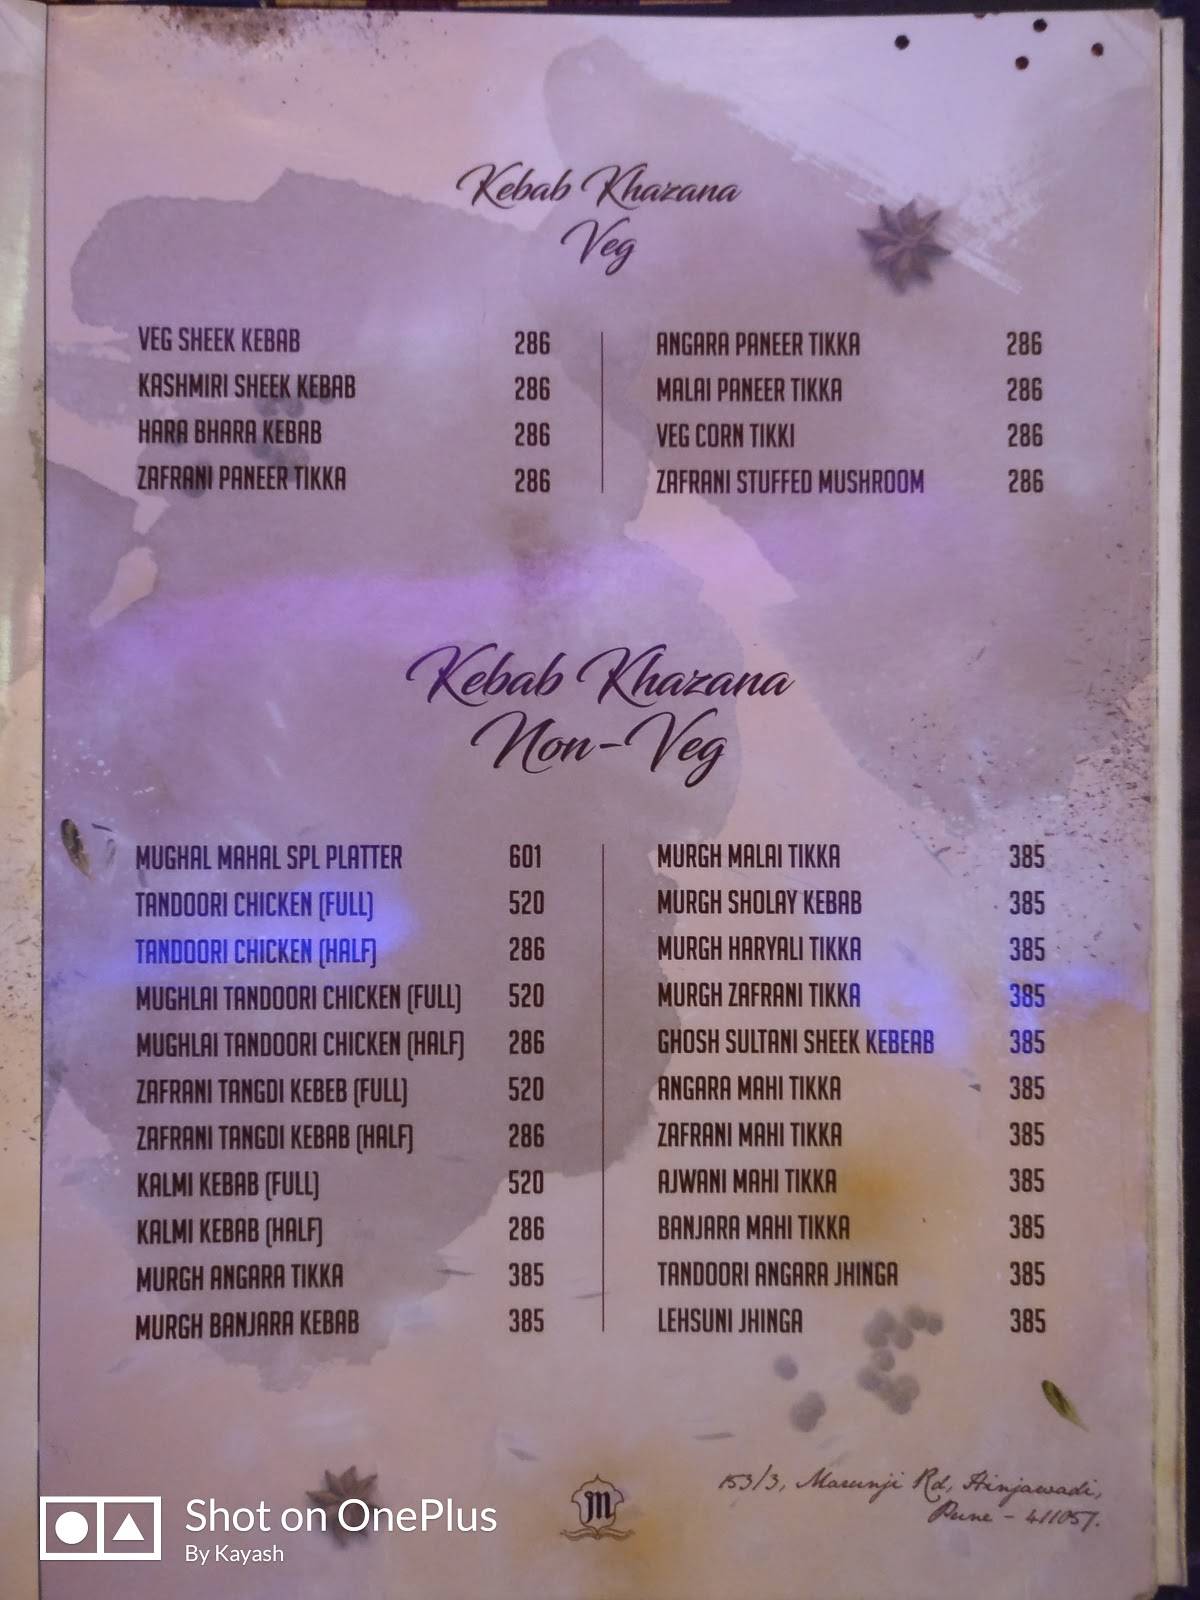 Kebab Khazana
Veg
VEG SHEEK KEBAB 286
KASHMIRI SHEEK KEBAB 286
HARA BHARA KEBAB 286
ZAFRANI PANEER TIKKA 286
ANGARA PANEER TIKKA 286
MALAI PANEER TIKKA 286
VEG CORN TIKKI 286
ZAFRANI STUFFED MUSHROOM 286
Kebab Khazana
Non-Veg
MUGHAL MAHAL SPL PLATTER 601
TANDOORI CHICKEN (FULL) 520
TANDOORI CHICKEN (HALF) 286
MUGHLAI TANDOORI CHICKEN (FULL) 520
MUGHLAI TANDOORI CHICKEN (HALF) 286
ZAFRANI TANGDI KEBEB (FULL) 520
ZAFRANI TANGDI KEBAB (HALF) 286
KALMI KEBAB (FULL) 520
KALMI KEBAB (HALF) 286
MURGH ANGARA TIKKA 385
MURGH BANJARA KEBAB 385
MURGH MALAI TIKKA 385
MURGH SHOLAY KEBAB 385
MURGH HARYALI TIKKA 385
MURGH ZAFRANI TIKKA 385
GHOSH SULTANI SHEEK KEBEAB 385
ANGARA MAHI TIKKA 385
ZAFRANI MAHI TIKKA 385
AJWANI MAHI TIKKA 385
BANJARA MAHI TIKKA 385
TANDOORI ANGARA JHINGA 385
LEHSUNI JHINGA 385
M
153/3, Marunji Rd, Hinjawadi,
Pune - 411057.
Shot on OnePlus
By Kayash